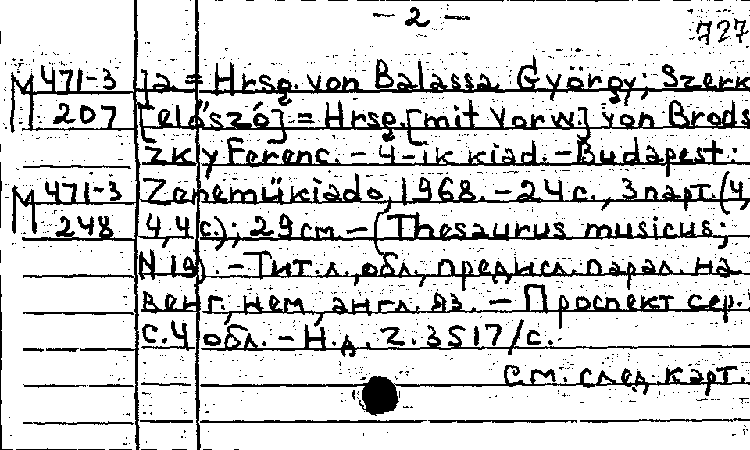 — 2 —
727
М 471-3 ja = Hrsg. von Balassa György; Szerk
207 [előszó] = Hrsg. [mit Vorw] von Brods
zky Ferenc. - 4-ik kiad. - Budapest:
М 471-3 Zeneműkiadó, 1968. - 24 с., 3 парт. (4,
248 4, 4 с.); 29 см. - (Thesaurus musicus;
N 19). - Тит. л., обл., предисл. парал. на
венг., нем., англ. яз. - Проспект сер.:
с. 4 обл. - Н. д. Z. 3517/с.
см. след. карт.